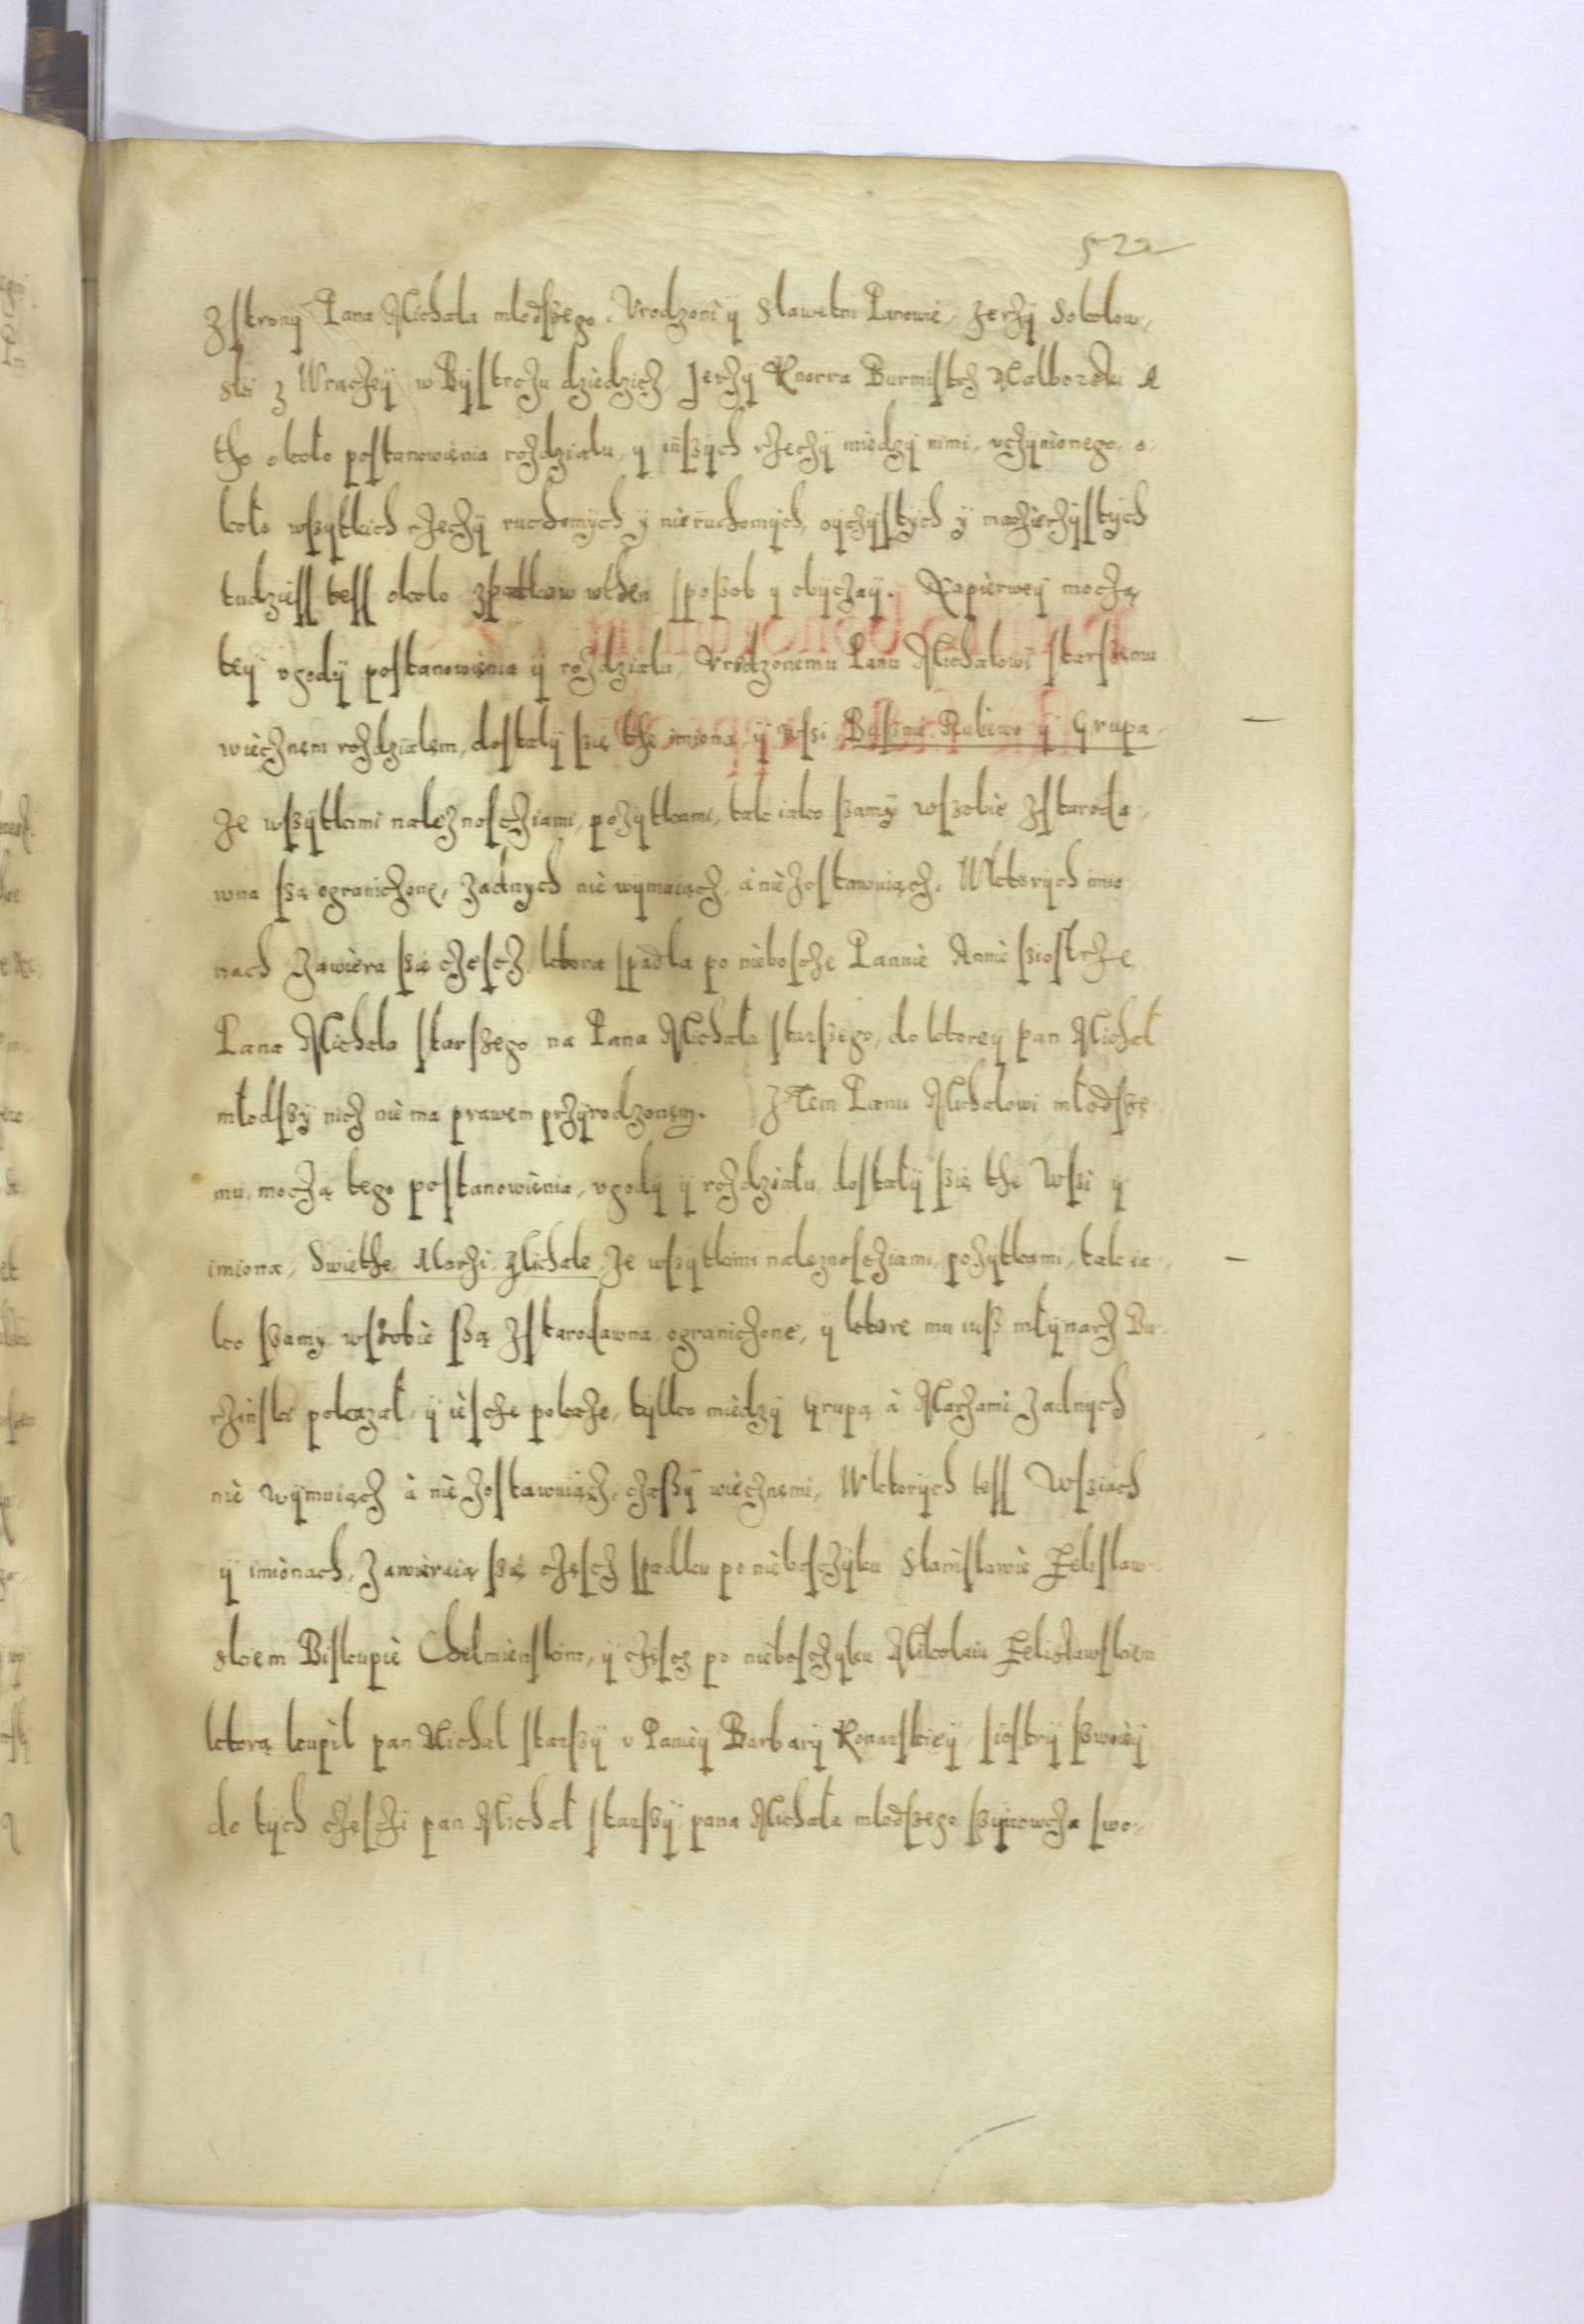 522
Zstrony Pana Michala mlodssego. Vrodzoni ÿ Slawetni Panowie, Jerzÿ Sokolow,
ski z Wrączeÿ w Bÿstrchu dziedzicz Jerzÿ Knorra Burmistrz Malborski A
tho okolo postanowienia rozdzialu, ÿ inssÿch rzeczÿ miedzÿ nimi, vczÿnionego, o
kolo wssÿtkich rzeczÿ ruchomÿch ÿ nieruchomÿch, oÿczÿstÿch ÿ macżierzÿstÿch
tudziess tess okolo spatkow wthen sposob ÿ obÿczaÿ. Napierweÿ moczą
teÿ vgodÿ postanowienia ÿ rozdzialu, Vrodzonemu Panu Michalowi starssemu
wiecznem rozdzialem, dostalÿ sie the imiona, ÿ Wsi Bussnie Rulewo ÿ Grupa,
Ze wssÿtkimi należnosciami, pożÿtkami, tak iako samÿ wsobie Zstaroda,
wna są ograniczone, żadnÿch nie wÿmuiącz, a nie zostawuiącz. Wktorÿch imio
nach Zawiera sie czescz, ktora spadla po niebosce Pannie Annie siostrze
Pana Michala starssego na Pana Michała starssego, do ktoreÿ pan Michał
młodssÿ nicz nie ma prawem przÿrodzonem. Item Panu Michalowi młodsse
mu, moczą tego postanowienia, vgodÿ ÿ rozdziału, dostałÿ sie the Wsi ÿ
imiona, Swiethe, Marzi, Michale, Ze wssÿtkimi należnosciami, pożÿtkami, tak ia,
ko samÿ wsobie są Zstarodawna ograniczone, ÿ ktore mu iuss młÿnarz Bu
rzinski pokazał, ÿ iescze pokaże, tÿlko miedzÿ Grupą a Marzami żadnÿch
nie wÿmuiącz a nie zostawuiącz, czassÿ wiecznemi, Wktorÿch tess Wsiach
ÿ imionach, Zawieraią się częscz spadku po nieboscżÿku Stanisławie Żelisław
skiem Biskupie Chelmienskim, ÿ częscz po nieboscżÿku Mikolaiu Żelisławskiem
ktorą kupil pan Michal starssÿ v Panieÿ Barbarÿ Konarskieÿ, siostrÿ sweÿ
do tÿch cżęsci pan Michał starssÿ pana Michała młodssego sÿnowcza swo,